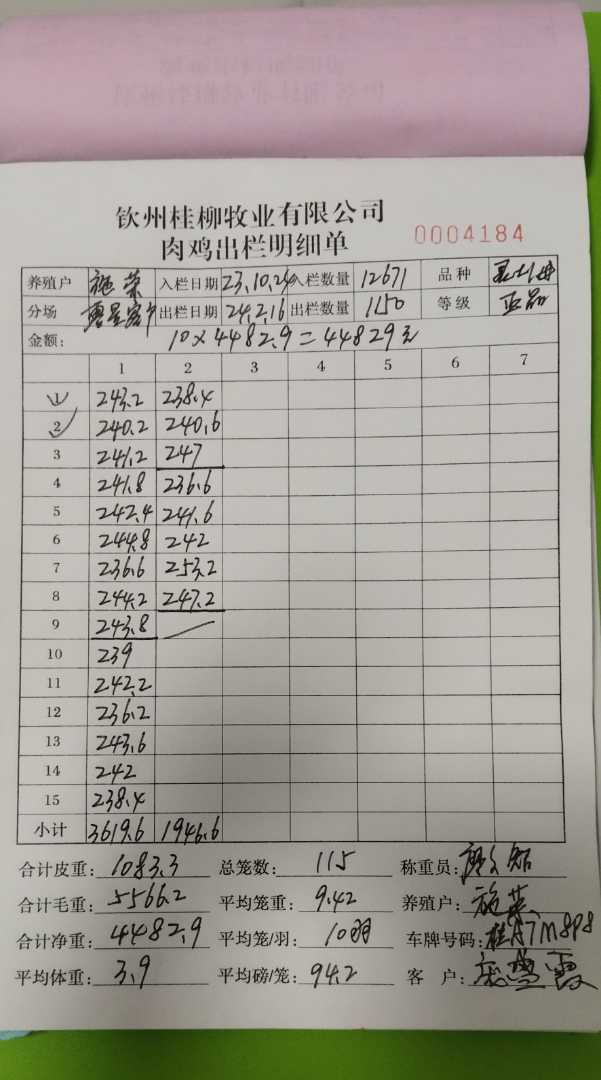 钦州桂柳牧业有限公司
肉鸡出栏明细单 0004184
养殖户 施荣 入栏日期 23.10.24 入栏数量 12671 品种
分场 出栏日期 24.2.16 出栏数量 1150 等级 正品
金额: 10×4482.9=44829元
1 2 3 4 5 6 7
1 243.2 238.4
2 240.2 240.6
3 241.2 247
4 241.8 236.6
5 242.4 241.6
6 244.8 242
7 236.6 253.2
8 244.2 247.2
9 243.8
10 239
11 242.2
12 236.2
13 243.6
14 242
15 238.4
小计 3619.6 1946.6
合计皮重: 1083.3 总笼数: 115 称重员:
合计毛重: 5566.2 平均笼重: 9.42 养殖户: 施荣
合计净重: 4482.9 平均笼/羽: 10羽 车牌号码:
平均体重: 3.9 平均磅/笼: 94.2 客 户: